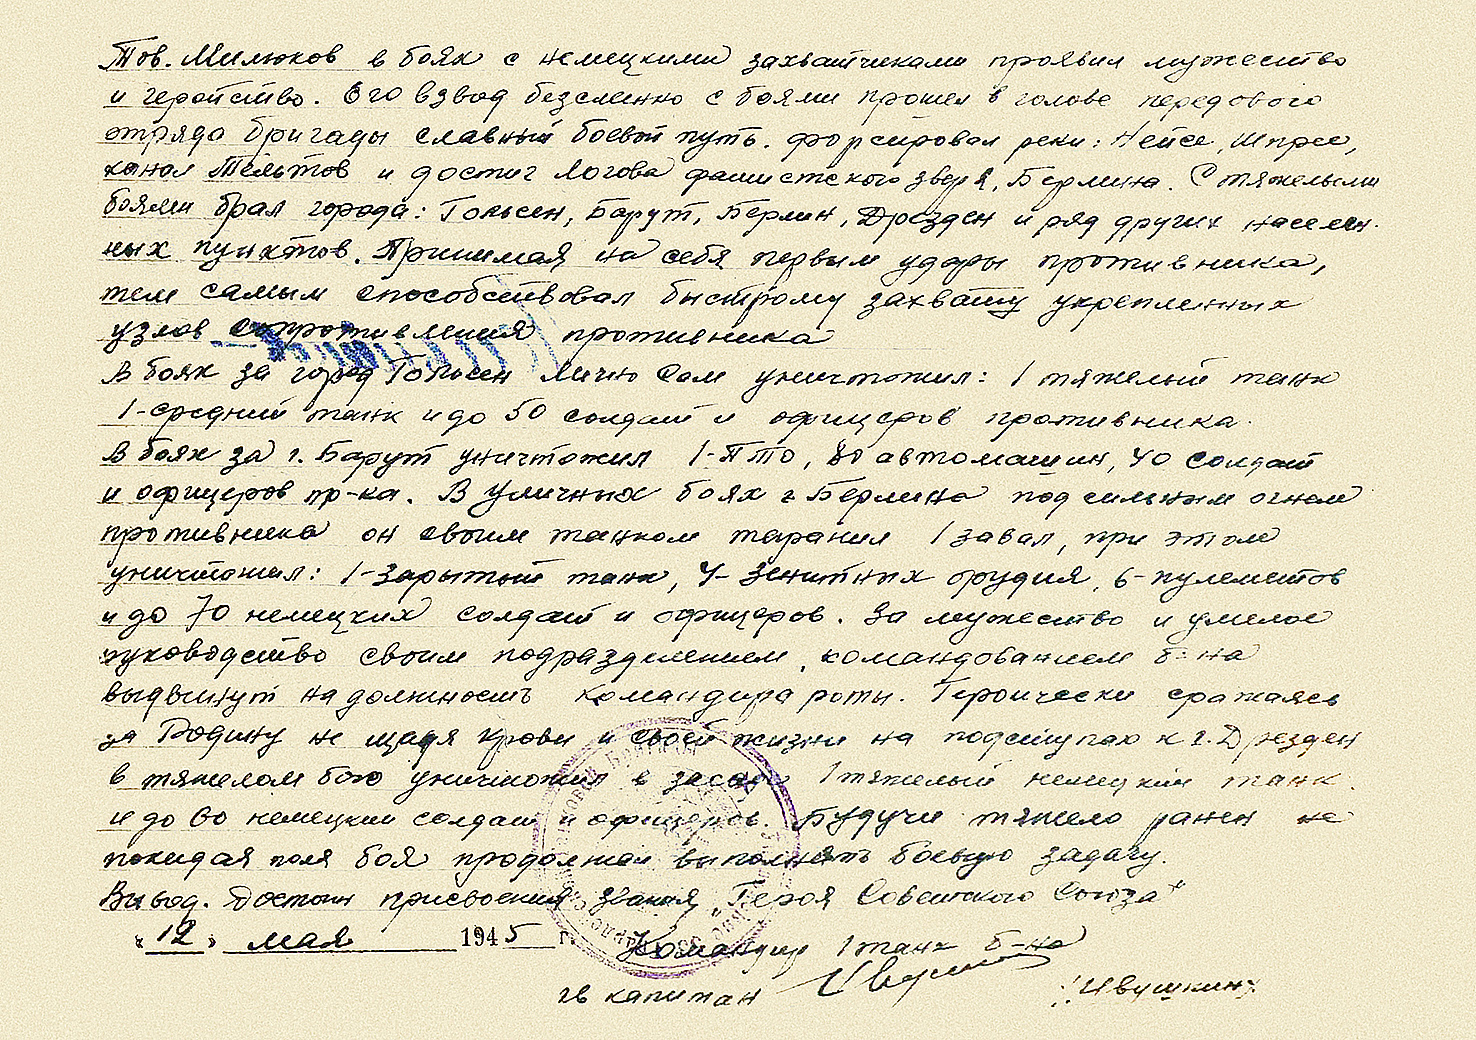 Тов. Милюков в боях с немецкими захватчиками проявил мужество
и геройство. Его взвод безсменно с боями прошел в голове передового
отряда бригады славный боевой путь. форсировал реки: Нейсе, Шпрее,
канал Тельтов и достиг логова фашистского зверя, Берлина. С тяжелыми
боями брал города: Гольсен, Барут, Берлин, Дрезден и ряд других населен.
ных пунктов. Принимая на себя первым удары противника,
тем самым способствовал быстрому захвату укрепленных
узлов сопротивления противника
В боях за город Гольсен лично сам уничтожил: 1 тяжелый танк
1-средний танк и до 50 солдат и офицеров противника.
В боях за г. Барут уничтожил 1-ПТО, автомашин, 40 солдат
и офицеров пр-ка. В уличных боях г Берлина под сильным огнем
противника он своим танком таранил 1 завал, при этом
уничтожил: 1-зарытый танк, 4-зенитных орудия, 6-пулеметов
и до 70 немецких солдат и офицеров. За мужество и умелое
руководство своим подразделением, командованием б-на
выдвинут на должность командира роты. Героически сражаясь
за Родину не щадя крови и своей жизни на подступах к г. Дрезден
в тяжелом бою уничтожил в засаде 1 тяжелый немецкий танк.
и до немецких солдат и офицеров. Будучи тяжело ранен не
покидая поля боя продолжал выполнять боевую задачу.
Вывод. Достоин присвоения звания „Героя Советского Союза"
"12" мая 1945 г.
Командир 1 танк б-на
гв капитан /Ивушкин/